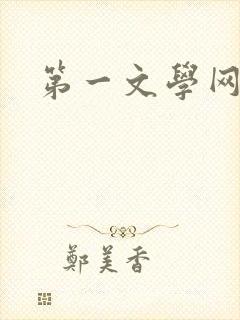 第一文學网
鄭美香